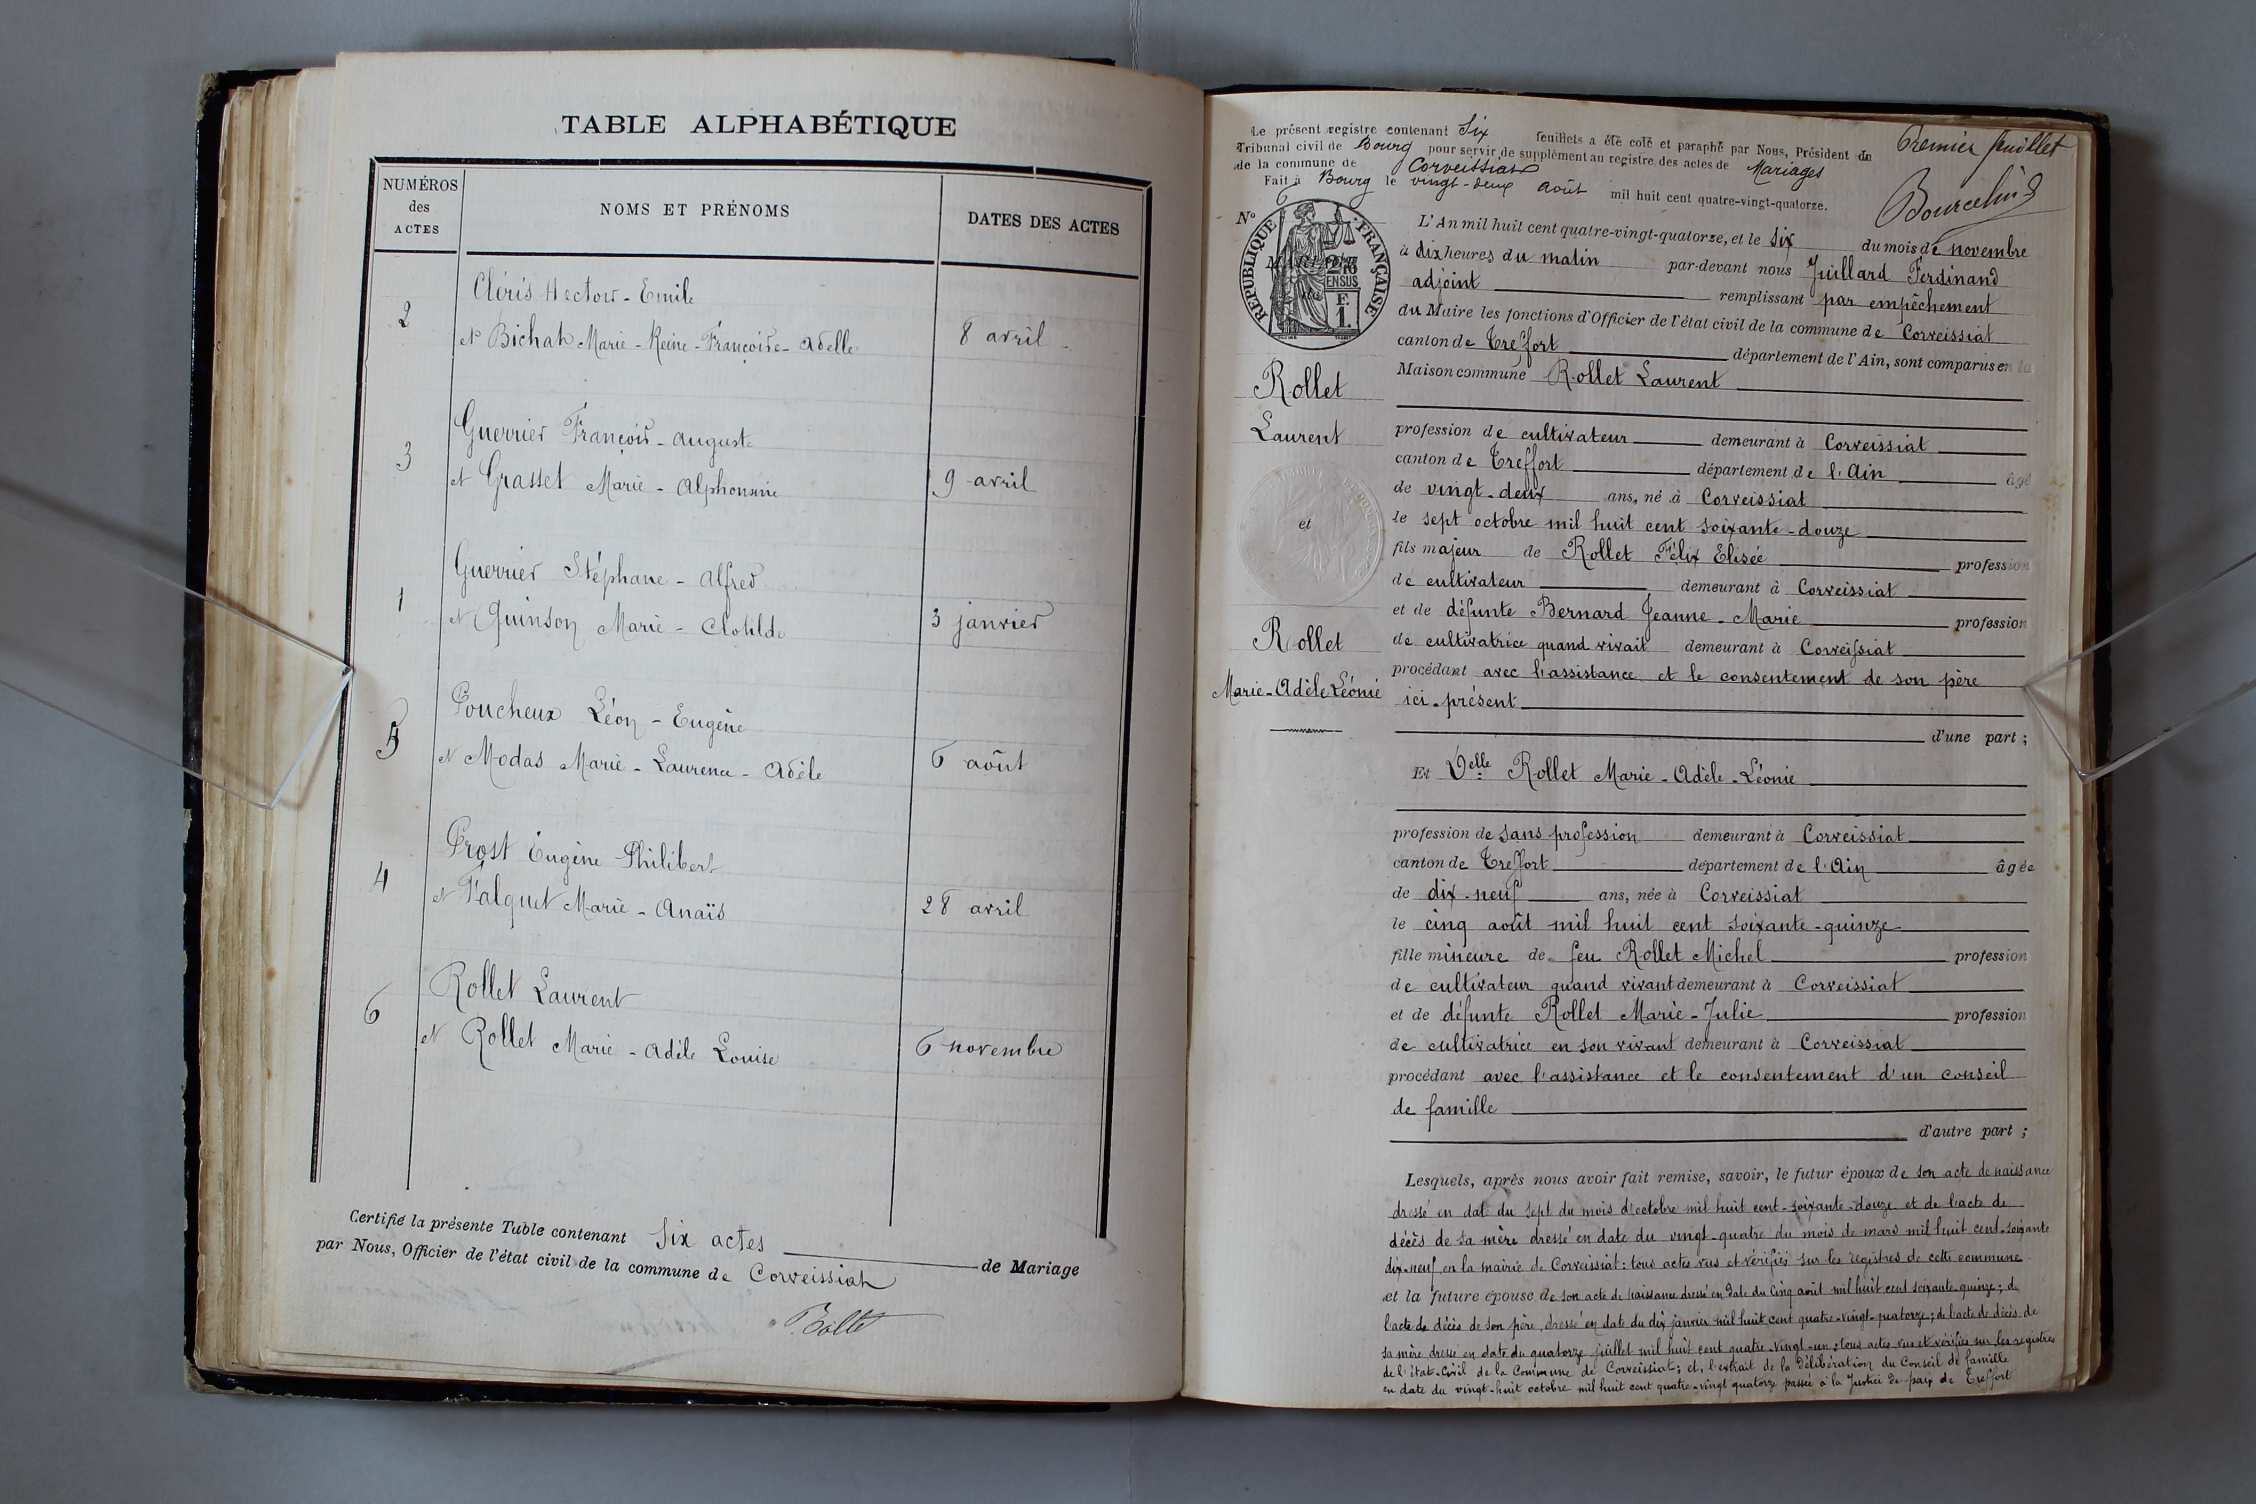 TABLE ALPHABÉTIQUE
NUMÉROS
des
ACTES
NOMS ET PRÉNOMS
DATES DES ACTES
Cléris Hector - Emile
2
et Bichat Marie - Reine - Françoise - Adelle
8 avril
Guerrier François - Auguste
3
et Grasset Marie - Alphonsine
9 avril
Guerrier Stéphane - Alfred
1
et Quinson Marie - Clotilde
3 janvier
Poucheux Léon - Eugène
5
et Modas Marie - Laurence - Adèle
6 août
Prost Eugène Philibert
4
et Falquet Marie - Anaïs
28 avril
Rollet Laurent
6
et Rollet Marie - Adèle Louise
6 novembre
Certifié la présente Table contenant Six actes de Mariage
par Nous, Officier de l'état civil de la commune de Corveissiat
Le présent registre contenant Six feuillets a été coté et paraphé par Nous, Président du
Tribunal civil de Bourg pour servir de supplément au registre des actes de Mariages
de la commune de Corveissiat
Fait à Bourg le vingt-deux août mil huit cent quatre-vingt-quatorze.
Premier feuillet
N° 6
RÉPUBLIQUE FRANÇAISE
L'An mil huit cent quatre-vingt-quatorze, et le six du mois de novembre
à dix heures du matin par-devant nous Juillard Ferdinand
adjoint remplissant par empêchement
du Maire les fonctions d'Officier de l'état civil de la commune de Corveissiat
canton de Treffort département de l'Ain, sont comparus en la
Maison commune Rollet Laurent
Rollet
Laurent
et
Rollet
Marie-Adèle Léonie
profession de cultivateur demeurant à Corveissiat
canton de Treffort département de l'Ain âgé
de vingt-deux ans, né à Corveissiat
le sept octobre mil huit cent soixante-douze
fils majeur de Rollet Félix Elisée profession
de cultivateur demeurant à Corveissiat
et de défunte Bernard Jeanne-Marie profession
de cultivatrice quand vivait demeurant à Corveissiat
procédant avec l'assistance et le consentement de son père
ici-présent
d'une part ;
Et Delle Rollet Marie-Adèle-Léonie
profession de sans profession demeurant à Corveissiat
canton de Treffort département de l'Ain âgée
de dix-neuf ans, née à Corveissiat
le cinq août mil huit cent soixante-quinze
fille mineure de feu Rollet Michel profession
de cultivateur quand vivant demeurant à Corveissiat
et de défunte Rollet Marie-Julie profession
de cultivatrice en son vivant demeurant à Corveissiat
procédant avec l'assistance et le consentement d'un conseil
de famille
d'autre part ;
Lesquels, après nous avoir fait remise, savoir, le futur époux de son acte de naissance
dressé en date du sept du mois d'octobre mil huit cent-soixante-douze et de l'acte de
décès de sa mère dressé en date du vingt-quatre du mois de mars mil huit cent-soixante
dix-neuf en la mairie de Corveissiat : tous actes vus et vérifiés sur les registres de cette commune
et la future épouse de son acte de naissance dressé en date du cinq août mil huit cent soixante-quinze ; de
l'acte de décès de son père, dressé en date du dix janvier mil huit cent quatre-vingt-quatorze ; de l'acte de décès de
sa mère dressé en date du quatorze juillet mil huit cent quatre-vingt-un : tous actes vus et vérifiés sur les registres
de l'état-civil de la Commune de Corveissiat ; et, l'extrait de la Délibération du Conseil de famille
en date du vingt-huit octobre mil huit cent quatre-vingt quatorze passée à la Justice de paix de Treffort